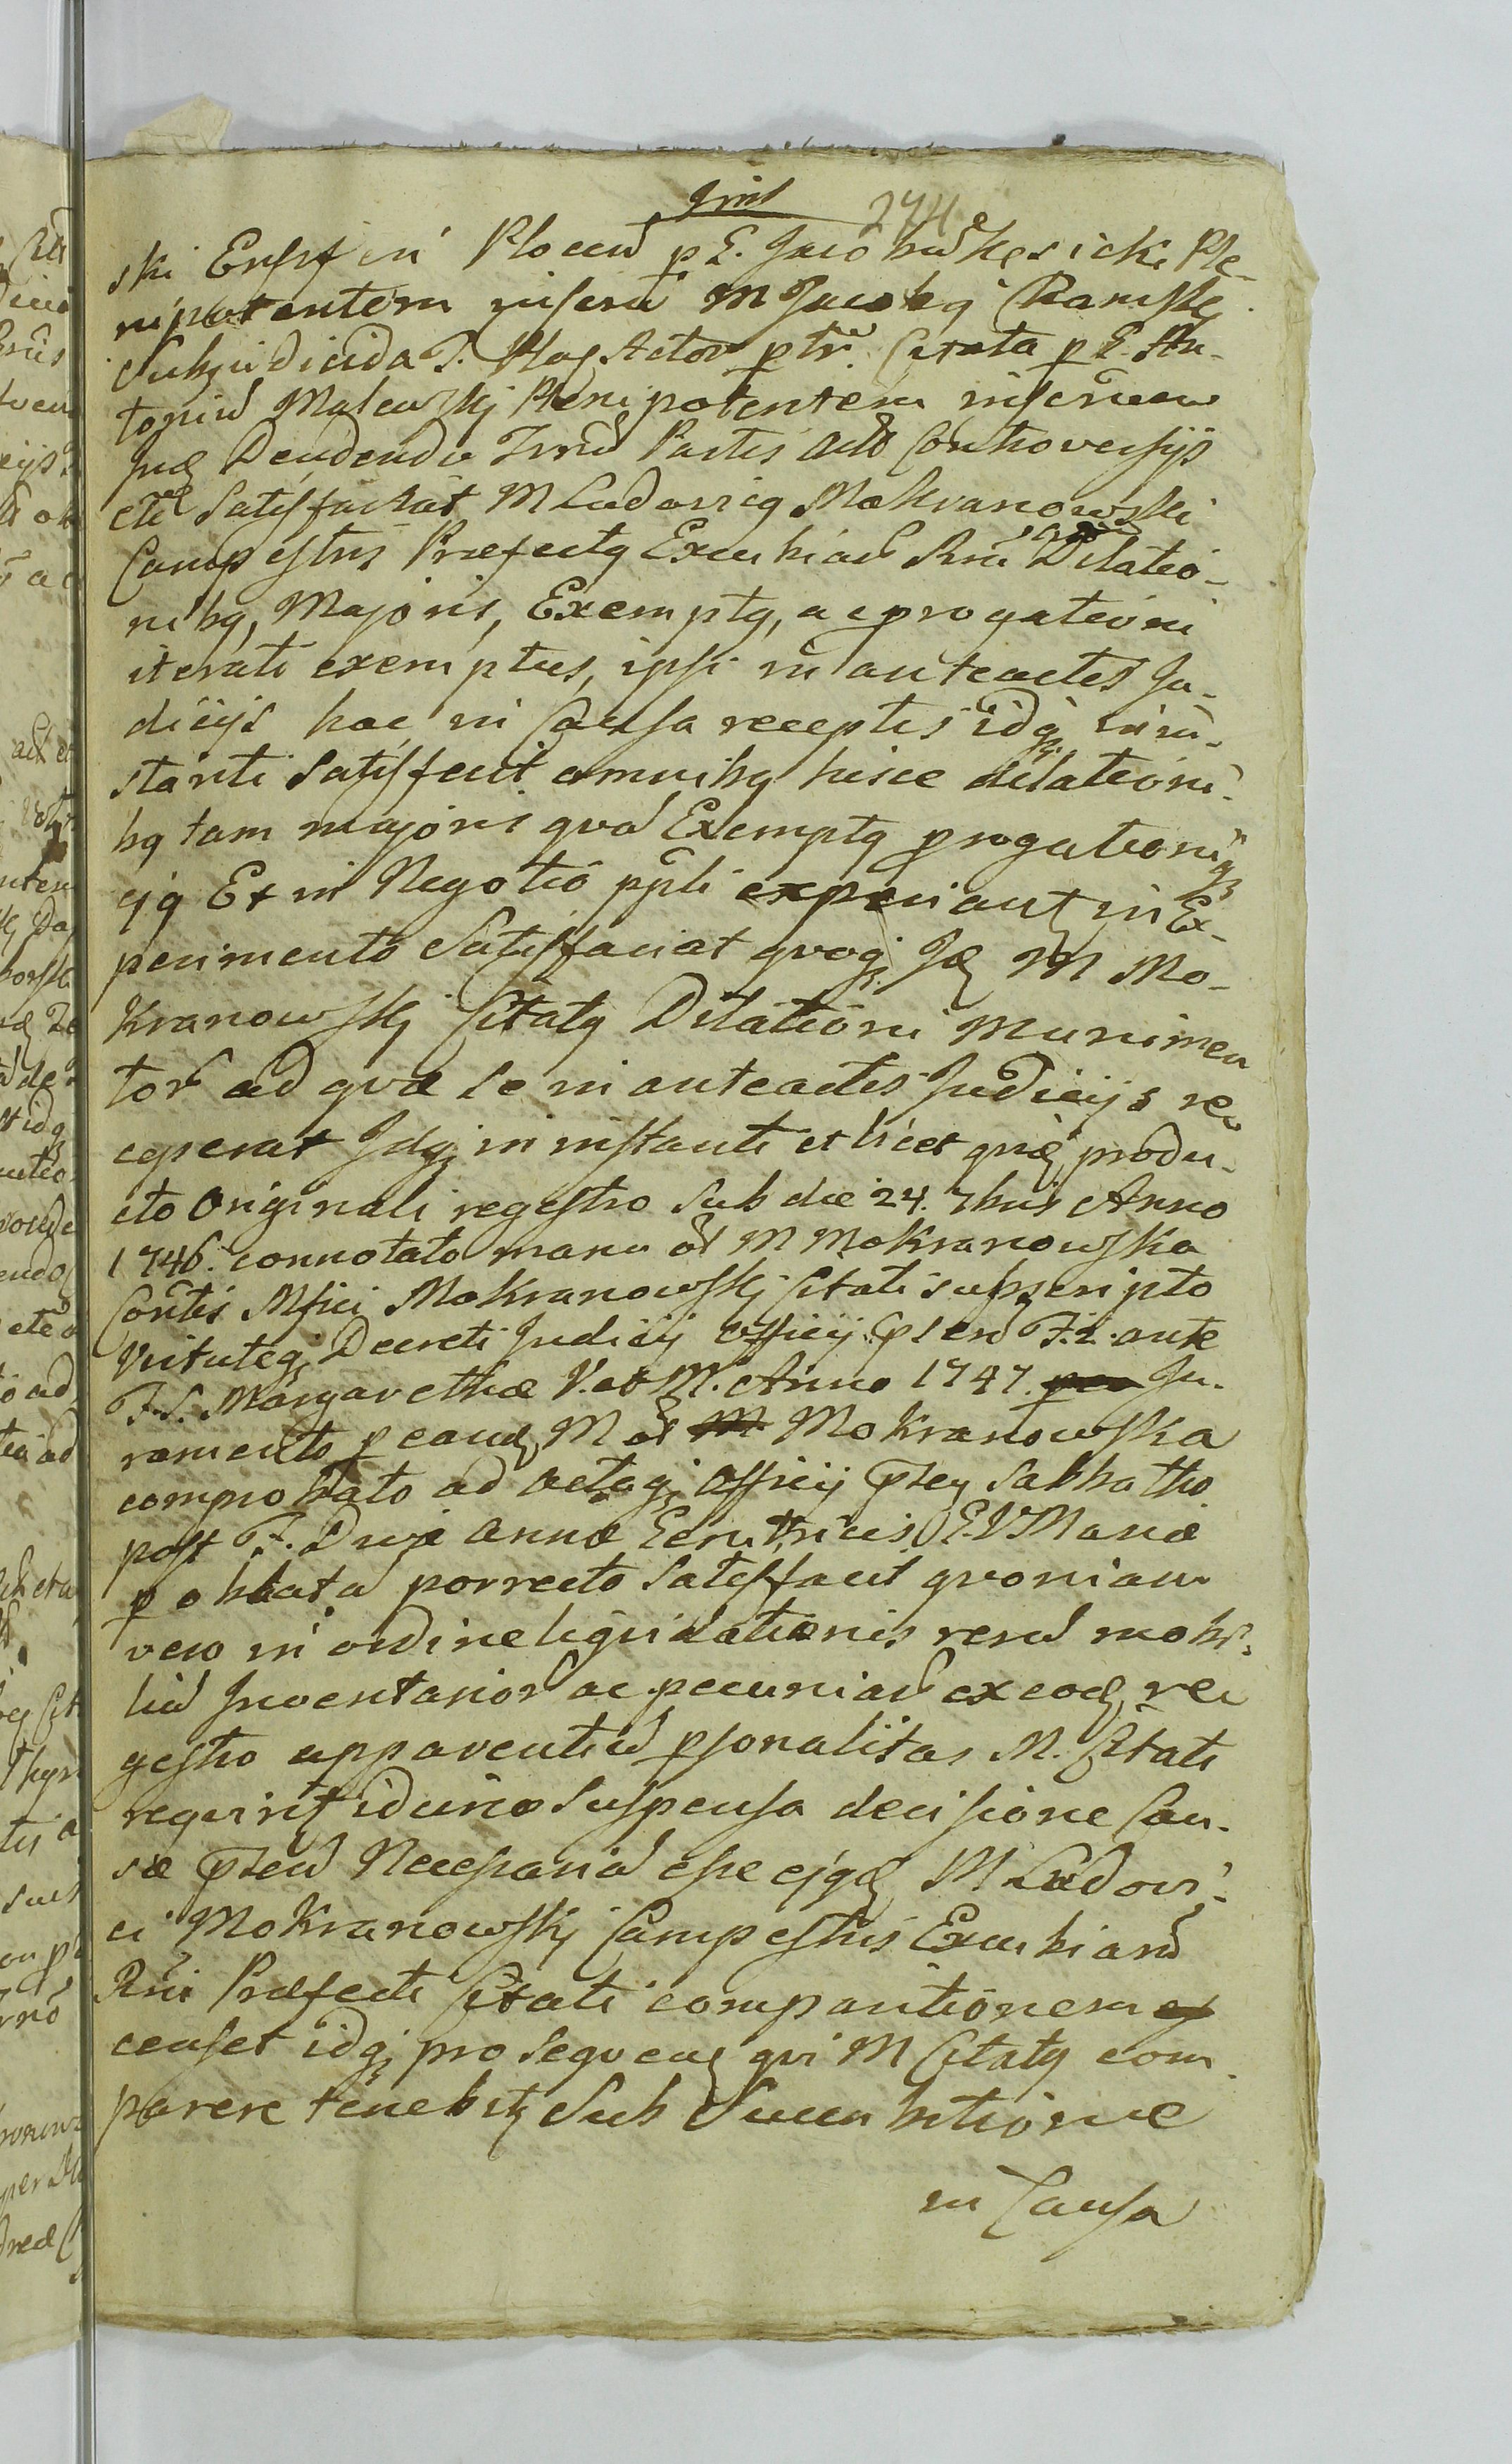 274
ski Ensif in Plocen p E. Jacobũ Kęsicki Ple-
nipotentem inferiũ M Jacobg Ramsky
Subiudicida T. Plag Actor ptr. Citata p E. An-
toniũ Malewskj Plenipotentem inferiem
Partis Controversijs
Satisfaciat M Ludovicg Mokranowski
Campestris Præfectg Excubiarũ Rni Dilatio-
nibg, Majoris, Exemptg, ac progationi
iterati exemptus, ipsi in anteactis Ju-
dicijs hac in Causa receptis idq in in-
stanti Satisfecit omnibg hisce dilationi-
bg tam majoris qvã Exemptg progationisq
ejg Et in Negotio ppli experiant in Ex-
perimento Satisfaciat qvoqj M Mo-
kranowskj Citatg Dilationi Munimen
tor ad qvæ se in anteactis Judicijs re
ceperat Idqj in instanti et licet produ-
cto Originali regestro sub die 24. 7bris Anno
1746. connotato manu M Mokranowska
Contis Mfici Mokranowskj Citati subscripto
Virtuteqj Decreti Judicij Officij Psen F. 2. ante
F. S. Margarethæ V. et M. Anno 1747. Ju-
ramento p eand M Mokranowska
comprobato ad Actaqj Officij Psen Sabbatho
post F. Divæ Annæ Genitricis B. V Mariæ
p oblata porrecto Satisfacit qvoniam
vero in ordine liqvidationis rerũ mobi-
liũ Inventarior ac pecuniarũ ex eod re
gestro apparentiũ psonalitas M. Citati
reqvirit idcirco Suspensa decisione Cau-
sæ Psen Necessariã esse ejqd M Ludovi-
ci Mokranowskj Campestris Excubiarũ
Rni Præfecti Citati comparitionem
censet idqj pro seqven qvi M Citatg com
parere tenebit Sub Succubitione
in Causa